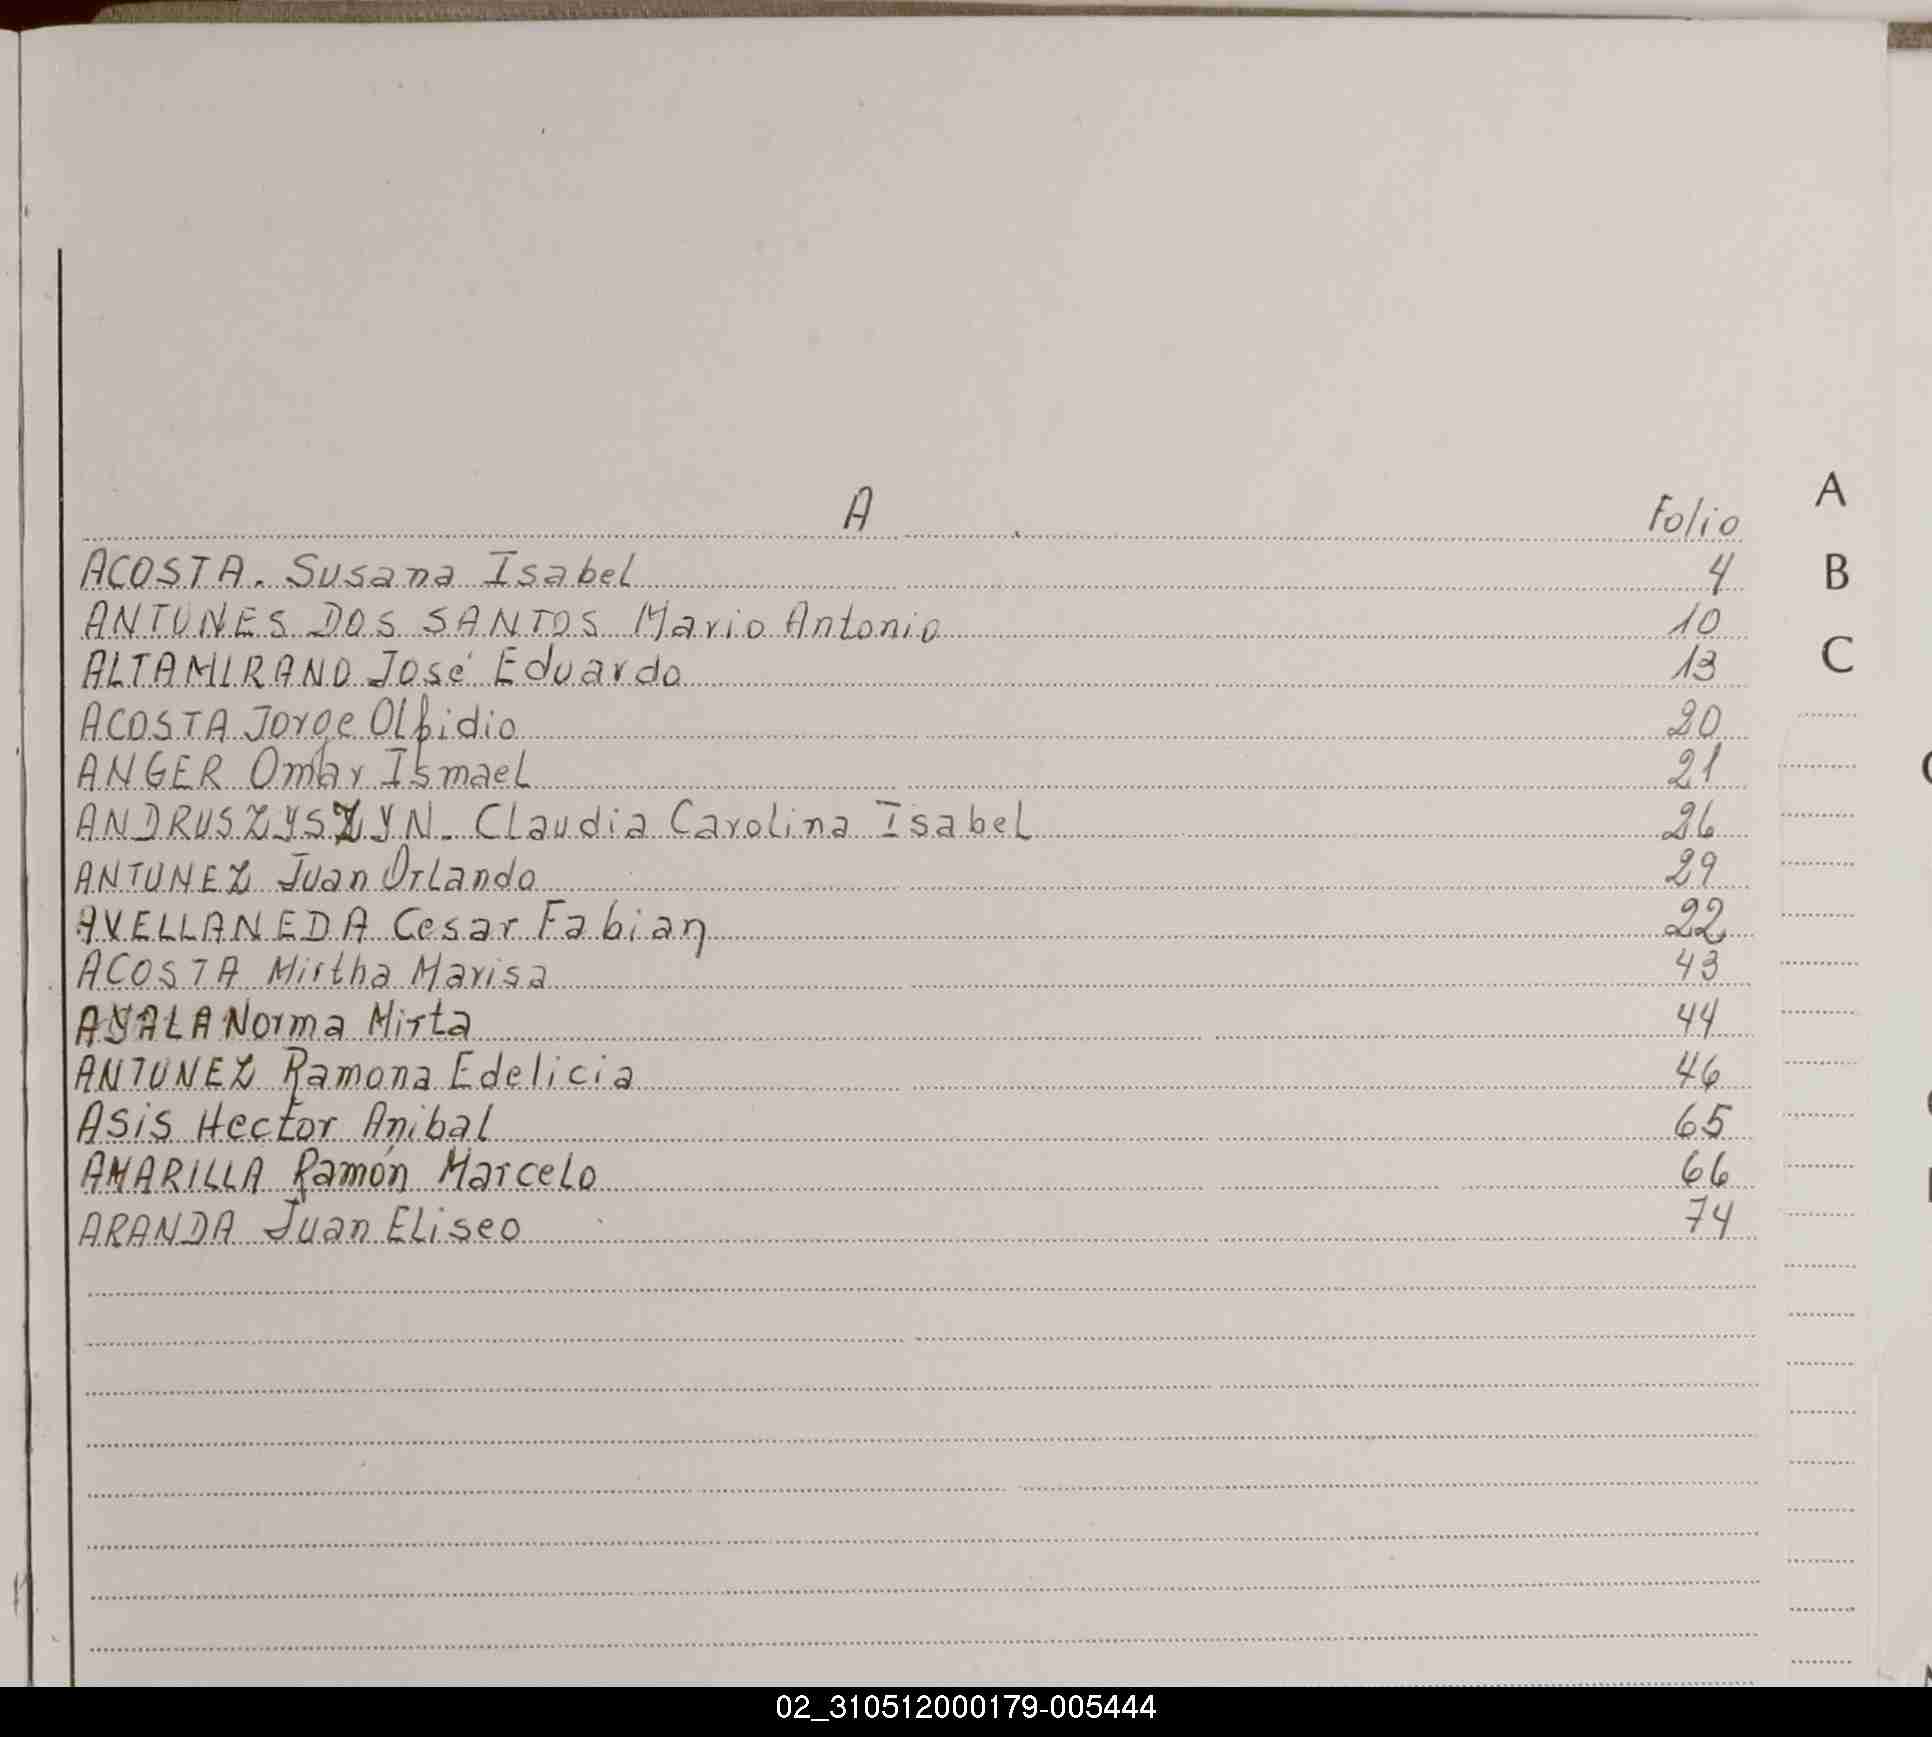 A Folio
ACOSTA. Susana Isabel 4
ANTUNES DOS SANTOS Mario Antonio 10
ALTAMIRANO José Eduardo 13
ACOSTA Jorge Olfidio 20
ANGER Omar Ismael 21
ANDRUSZYSZYN. Claudia Carolina Isabel 26
ANTUNEZ Juan Orlando 29
AVELLANEDA Cesar Fabian 22
ACOSTA Mirtha Marisa 43
AYALA Norma Mirta 44
ANTUNEZ Ramona Edelicia 46
Asis Hector Anibal 65
AMARILLA Ramón Marcelo 66
ARANDA Juan Eliseo 74
A
B
C
02_310512000179-005444